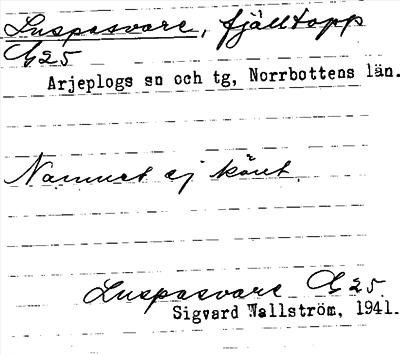 Luspasvare, fjälltopp
G25
Arjeplogs sn och tg, Norrbottens län.
Namnet ej känt.
Luspasvare G25.
Sigvard Wallström, 1941.